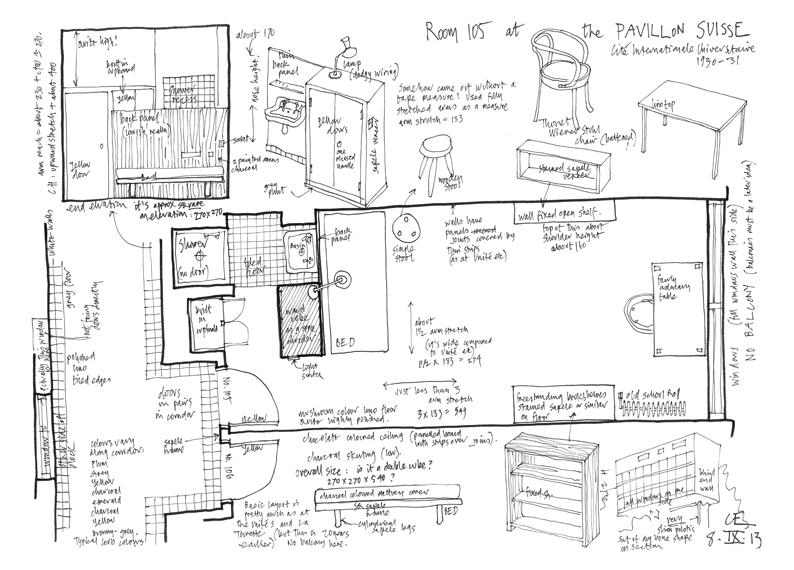 Room 105 at the PAVILLON SUISSE
Cité Internationale Universitaire
1930-31
quite high!
built in
cupboard
yellow
shower
recess
back panel
yellow
door
Bed
socket
2 painted areas
charcoal
end elevation it's approx square
on elevation: 270 x 270
arm reach = about 230
CH: upward stretch + about 400
about 170
nose height!
thin
back
panel
lamp
(dodgy wiring)
yellow
doors
one
recessed
handle
sapele veneer
grey
plinth
Somehow came out without a
tape measure! Used fully
stretched arms as a measure
arm stretch = 183
wooden
stool
Thonet
Wiener Stuhl
chair (battered!)
lino top
stained sapele
veneer
wall fixed open shelf.
top of this about
shoulder height
about 140
walls have
panels
joints covered by
thin strips
(as at Unité etc)
single
stool
white walls
grey floor
not facing
doors directly
Shower
(no door)
tiled
floor
Basin
back
panel
built
in
cupboard
ward
robe
as a room
divider
light
switch
BED
about
1½ arm stretch
(it's wide compared
to Unité etc)
1½ x 183 = 274
just less than 3
arm stretch
3 x 183 = 549
fairly
ordinary
table
windows (full windows wall this side)
NO BALCONY (balconies must be a later idea)
polished
lino
tiled edges
window to
block
doors
in pairs
in corridor
sapele
frame
No. 105
No. 106
yellow
yellow
mushroom colour lino floor
quite highly polished.
chocolate coloured ceiling (panelled board
with strips over joins)
charcoal skirting (low).
overall size: is it a double cube?
270 x 270 x 540?
charcoal coloured mattress cover
sapele
frame
cylindrical
sapele legs
BED
freestanding bookshelves
stained sapele or similar
on floor
old school rad
colours vary
along corridor:
Plum
Grey
Yellow
charcoal
emerald
charcoal
yellow
browny-grey.
Typical Corb colours.
Basic layout is
pretty much as at
the Unités and La
Tourette (but this is 20 years
earlier) No balcony here.
fixed sh.
all windows on one
side
blind end
wall
very
slim pilotis
sort of dog bone shape
on section
8.IX.13